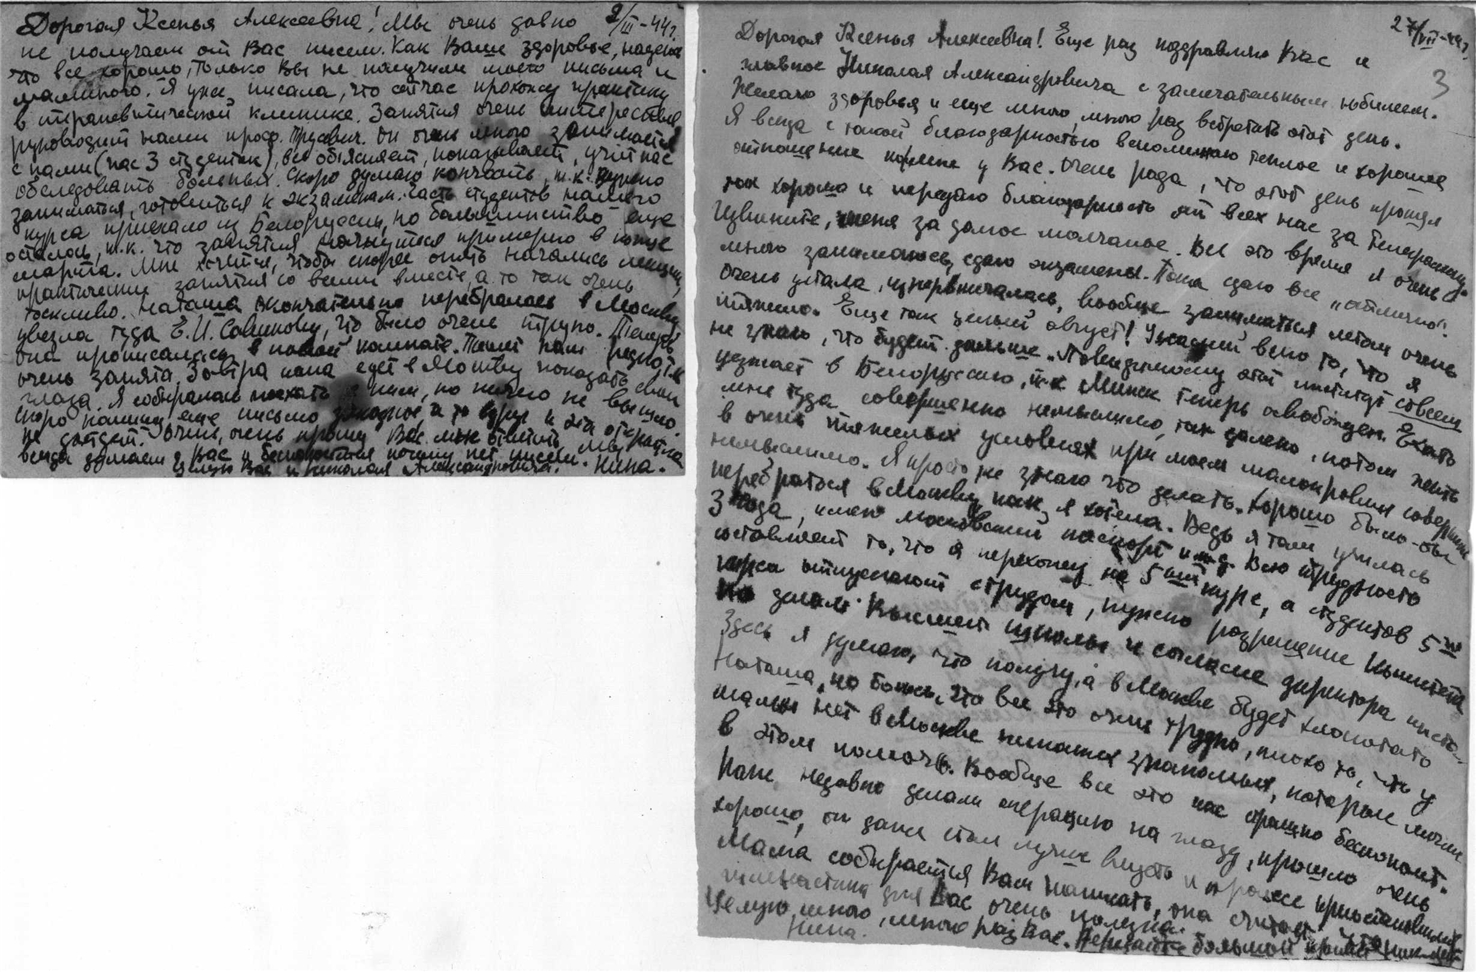 Дорогая Ксенья Алексеевна! Мы очень давно 2/III-44г.
не получаем от Вас писем. Как Ваше здоровье, надеюсь
что все хорошо, только Вы не получили моего письма и
маминого. Я уже писала, что сейчас прохожу практику
в терапевтической клинике. Занятия очень интересные,
руководит нами проф. Он очень много занимается
с нами (нас 3 студентки), все объясняет, показывает, учит нас
обследовать больных. Скоро думаю кончать, т.к. нужно
заниматься, готовиться к экзаменам. Часть студентов нашего
курса приехало из Белоруссии, но большинство еще
осталось, т.к. что занятия начнутся примерно в конце
марта. Мне хочется, чтобы скорее опять начались лекции,
практические занятия со всеми вместе, а то так очень
тоскливо. Наташа окончательно перебралась в Москву
увезла туда Е.И. Савинову, что было очень трудно. Теперь
она прописалась в нашей комнате. Пишет нам редко, т.к.
очень занята. Завтра папа едет в Москву показать свои
глаза. Я собиралась поехать с ним, но ничего не вышло.
Скоро напишу еще письмо заказное а то вдруг и эта открытка
не дойдет. Очень, очень прошу Вас мне ответить. Мы
всегда думаем о Вас и беспокоимся почему нет писем.
Целую Вас и Николая Александровича. Нина.
27/VII-44г.
3
Дорогая Ксенья Алексеевна! Еще раз поздравляю Вас и
главное Николая Александровича с замечательным юбилеем.
Желаю здоровья и еще много, много раз встретить этот день.
Я всегда с такой благодарностью вспоминаю теплое и хорошее
отношение ко мне у Вас. Очень рада, что этот день прошел
так хорошо и передаю благодарность от всех нас за телеграмму.
Извините, меня за долгое молчанье. Все это время я очень
много занималась, сдаю экзамены. Пока сдаю все „отлично".
Очень устала, изнервничалась, вообще заниматься летом очень
тяжело. Еще так целый август! Ужасней всего то, что я
не знаю, что будет дальше. Повидимому этот институт совсем
уезжает в Белоруссию, т.к. Минск теперь освобожден. Ехать
мне туда совершенно немыслимо, так далеко, потом жить
в очень тяжелых условиях при моем малокровии совершенно
немыслимо. Я просто не знаю что делать. Хорошо было-бы
перебраться в Москву, как я хотела. Ведь я там училась
3 года, имею московский паспорт и т.д. Всю трудность
составляет то, что я перехожу на 5ый курс, а студентов 5го
курса отпускают с трудом, нужно разрешение Комитета
по делам Высшей школы и согласие директора инсти-
Здесь я думаю, что получу, а в Москве будет хлопотать
Наташа, но боюсь, что все это очень трудно, плохо то, что у
мамы нет в Москве никаких знакомых, которые могли
в этом помочь. Вообще все это нас страшно беспокоит.
Папе недавно делали операцию на глазу, прошло очень
хорошо, он даже стал лучше видеть и
Мама собирается Вам написать, она считает, что
гимнастика для Вас очень полезна.
Целую много, много раз Вас. Передайте большой привет
Нина.